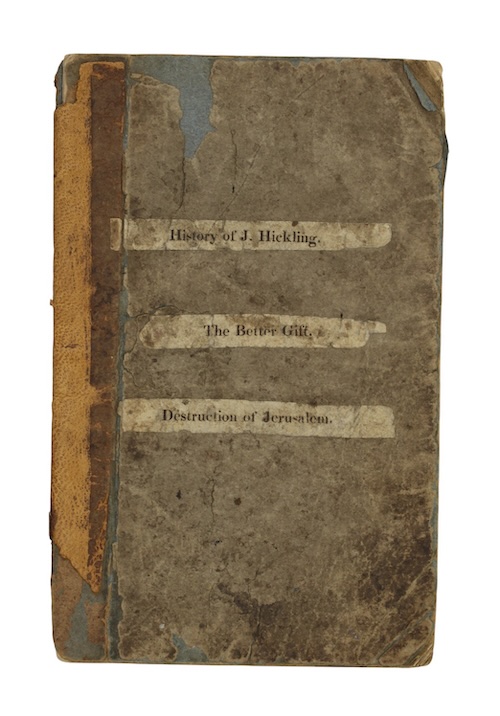 History of J. Hickling.
The Better Gift.
Destruction of Jerusalem.